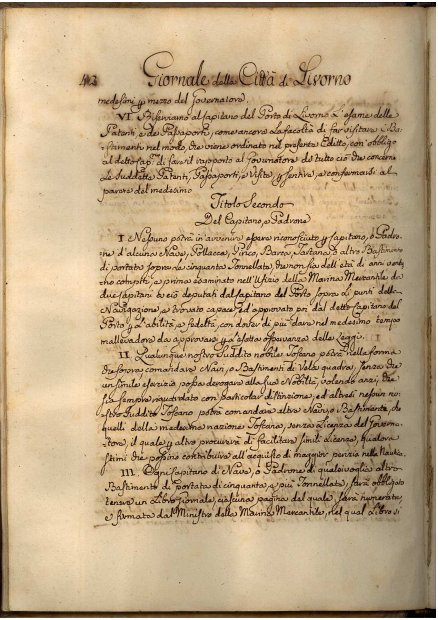 412 Giornale della Città di Livorno
medesimi p mezzo del Governatore.
VI. Riserviamo al Capitano del Porto di Livorno l'esame delle
Patenti, e de Passaporti, come ancora la facoltà di far visitare i Ba-
stimenti nel modo che viene ordinato nel presente Editto, con obbligo
al detto Cap.º di farne il rapporto al Governatore di tutto ciò che concerne
le suddette Patenti, Passaporti, e Visite, p sentire, e conformarsi al
parere del medesimo
Titolo Secondo
Del Capitano, e Padrone
I. Nessuno potrà in avvenire essere riconosciuto p Capitano, o Padro-
ne d'alcuna Nave, Pollacca, Pinco, Barca, Tartana, o altro Bastimento
di portata sopra le cinquanta Tonnellate, che non sia dell'età di anni venti,
che compiti, e prima esaminato nell'Ufizio della Marina Mercantile da
due Capitani a ciò deputati dal Capitano del Porto sopra i punti della
Navigazione, e trovato capace, ed approvato poi dal detto Capitano del
Porto p l'abilità, e fedeltà, con dover di più dare nel medesimo tempo
mallevadore da approvarsi p la esatta osservanza delle Leggi.
II. Qualunque nostro Suddito nobile Toscano potrà nella forma
che sopra comandare Navi, o Bastimenti di Vela quadra, senza che
un simile esercizio possa derogare alla sua Nobiltà, volendo anzi, che
sia sempre riguardato con particolar distinzione, ed altresì nessun no-
stro Suddito Toscano potrà comandare altre Navi, o Bastimenti, che
quelli della medesima nazione Toscana, senza licenza del Governa-
tore, il quale p altro procurerà di facilitare simili licenze, qualora
stimi che possino contribuire all'acquisto di maggior perizia nella Nautica.
III. Ogni Capitano di Nave, o Padrone di qualsivoglia altro
Bastimento di portata di cinquanta, e più Tonnellate, sarà obbligato
tenere un Libro Giornale, ciascuna pagina del quale sarà numerata,
e firmata dal Ministro della Marina Mercantile, nel qual Libro si